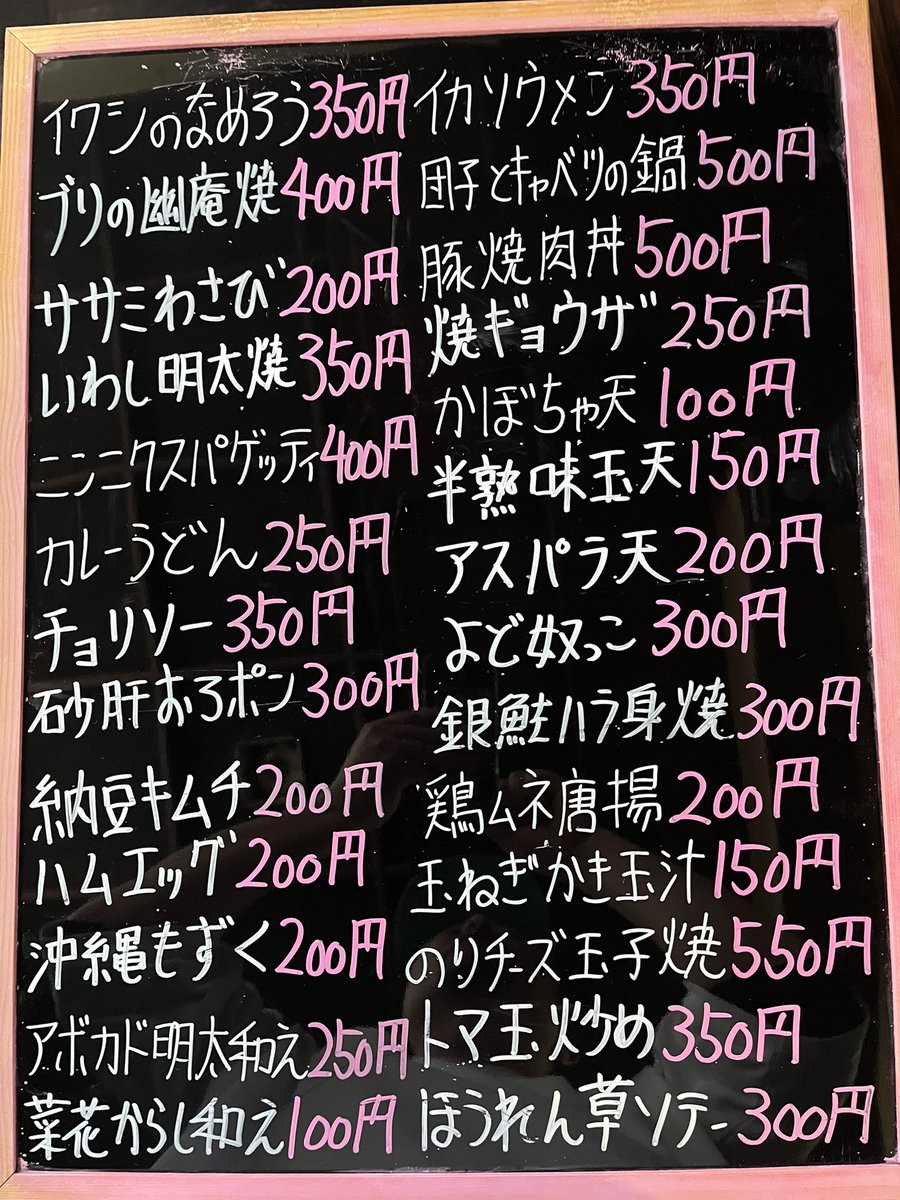 イワシのなめろう350円
ブリの幽庵焼400円
ササミわさび200円
いわし明太焼350円
ニンニクスパゲッティ400円
カレーうどん250円
チョリソー350円
砂肝おろポン300円
納豆キムチ200円
ハムエッグ200円
沖縄もずく200円
アボカド明太和え250円
菜花からし和え100円
イカソウメン350円
団子とキャベツの鍋500円
豚焼肉丼500円
焼ギョウザ250円
かぼちゃ天100円
半熟味玉天150円
アスパラ天200円
よど奴っこ300円
銀鮭ハラ身焼300円
鶏ムネ唐揚200円
玉ねぎかき玉汁150円
のりチーズ玉子焼550円
トマ玉炒め350円
ほうれん草ソテー300円